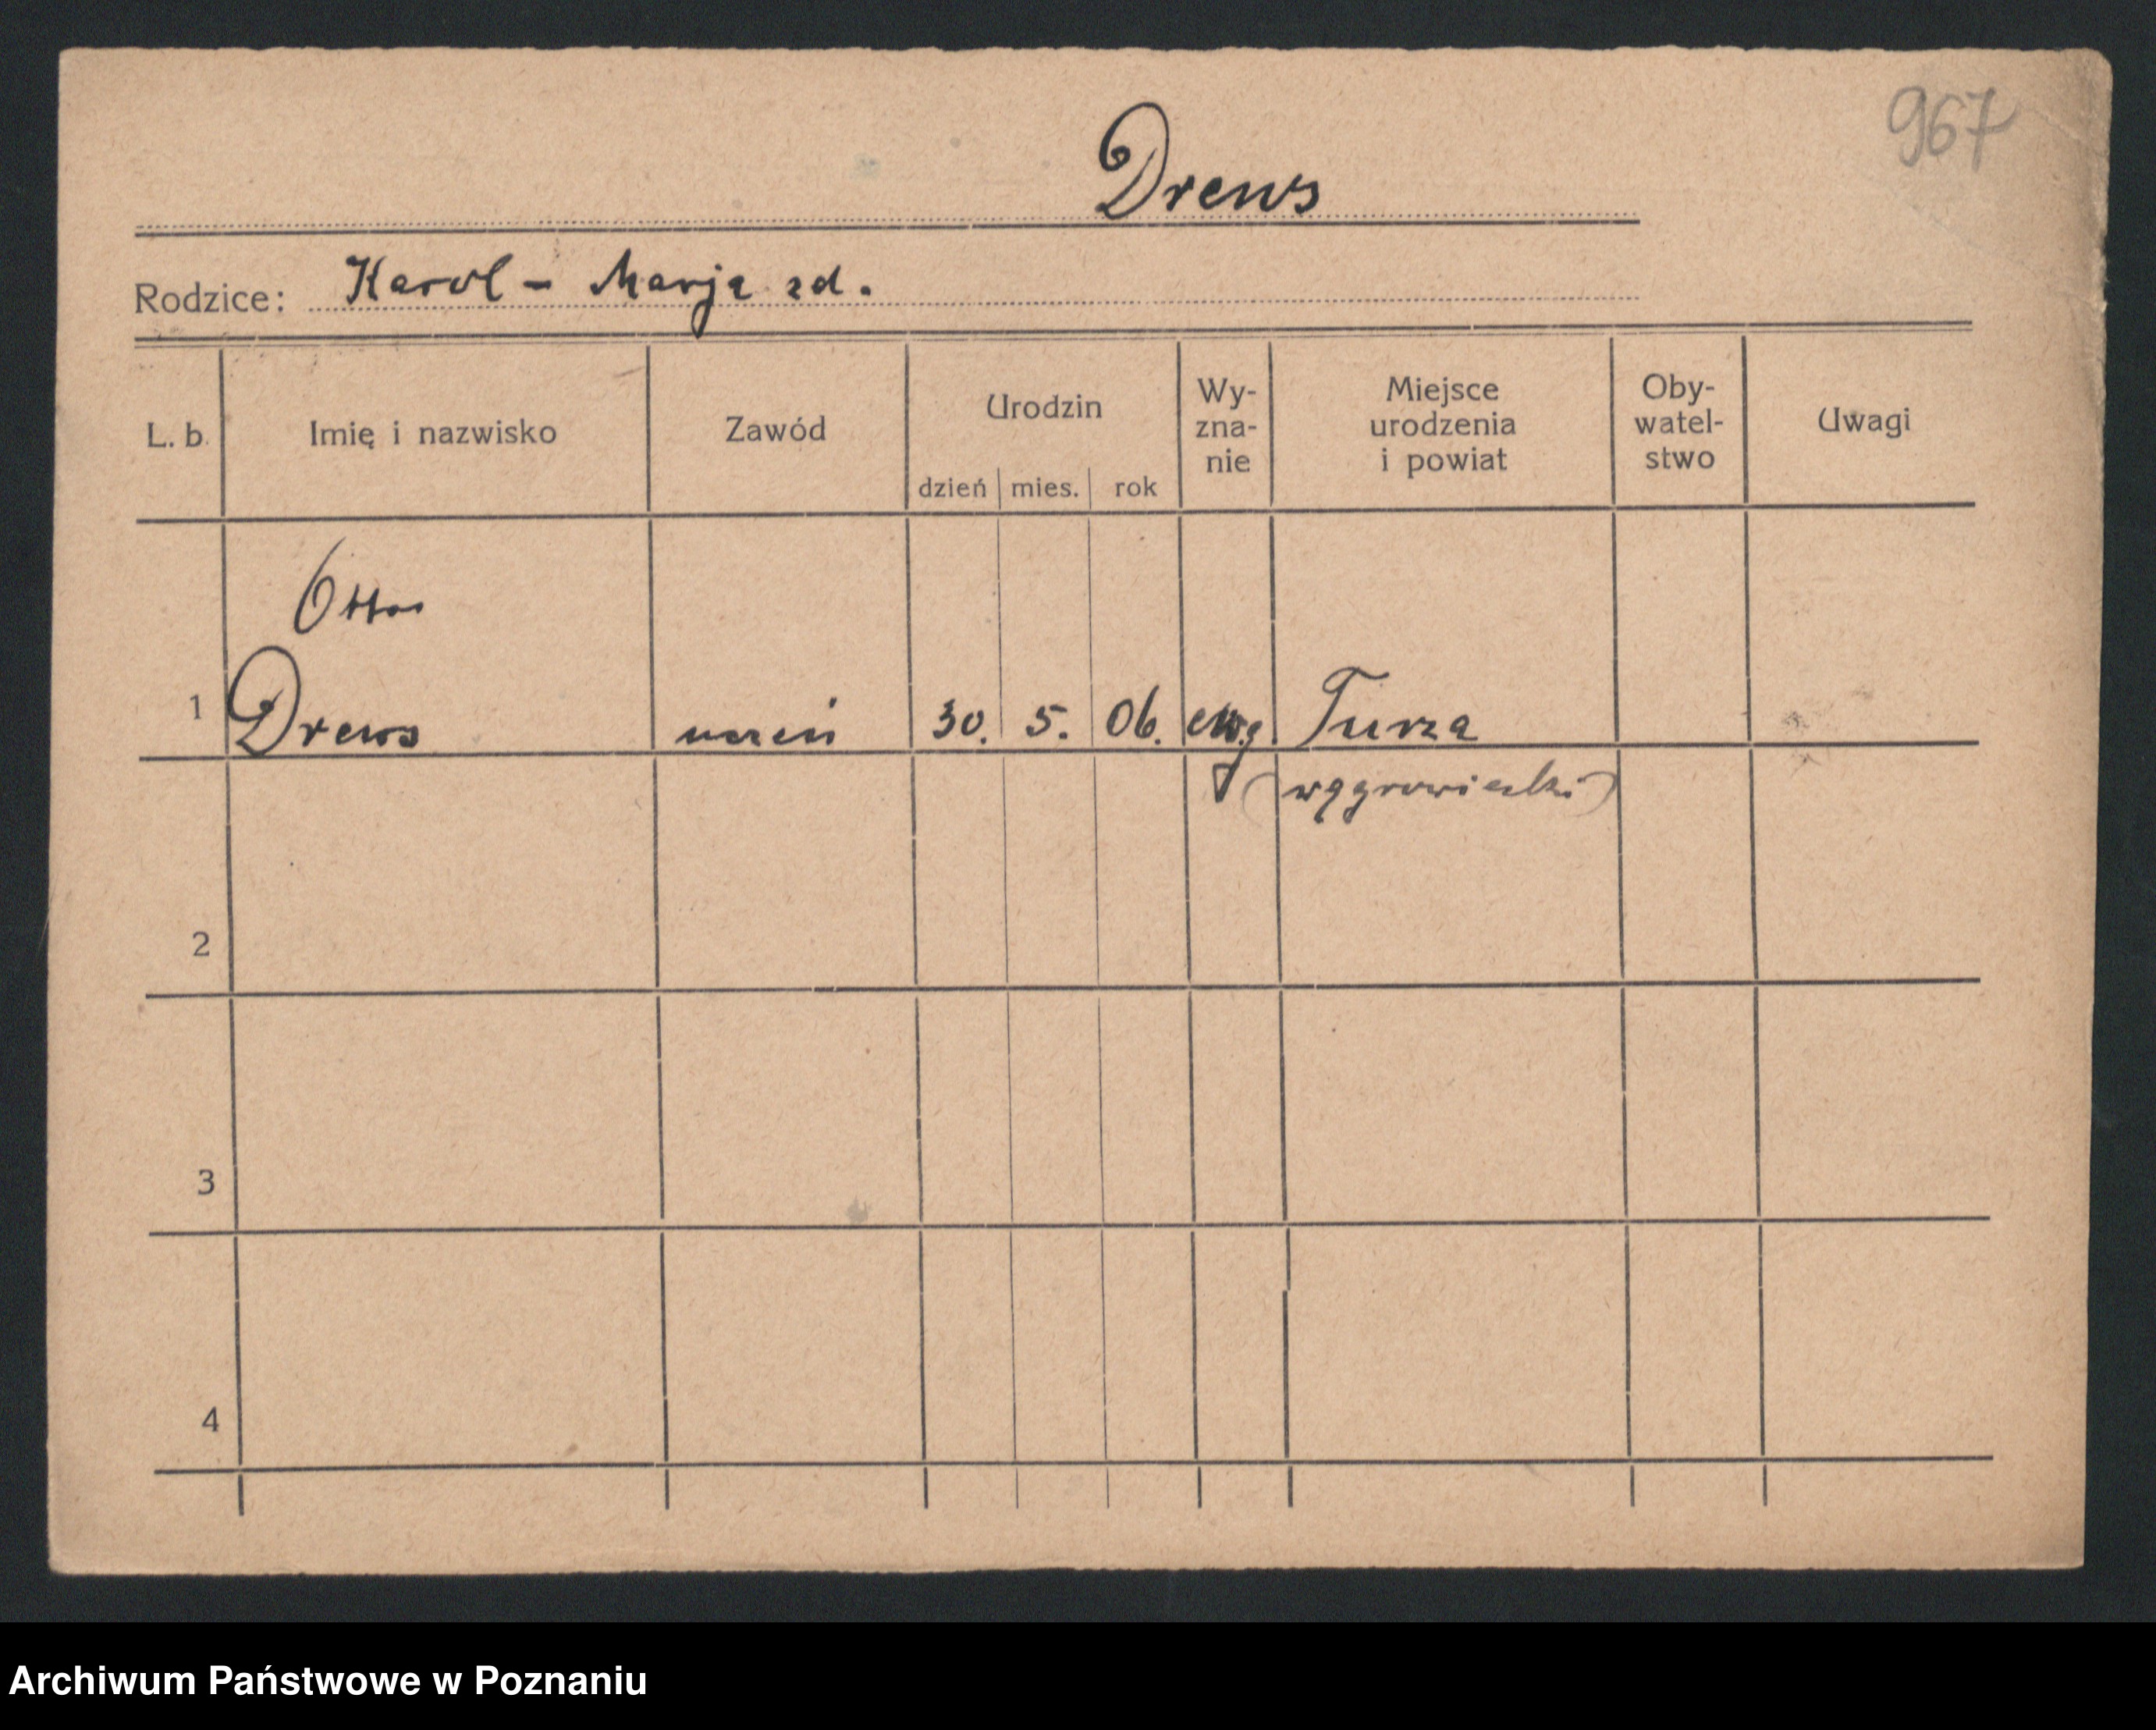 967
Drews
Rodzice: Karol - Marja zd.
L. b. Imię i nazwisko Zawód Urodzin dzień mies. rok Wy-zna-nie Miejsce urodzenia i powiat Oby-watel-stwo Uwagi
Otto
1 Drews uczeń 30. 5. 06. ewg. Turza
(wągrowiecki)
2
3
4
Archiwum Państwowe w Poznaniu